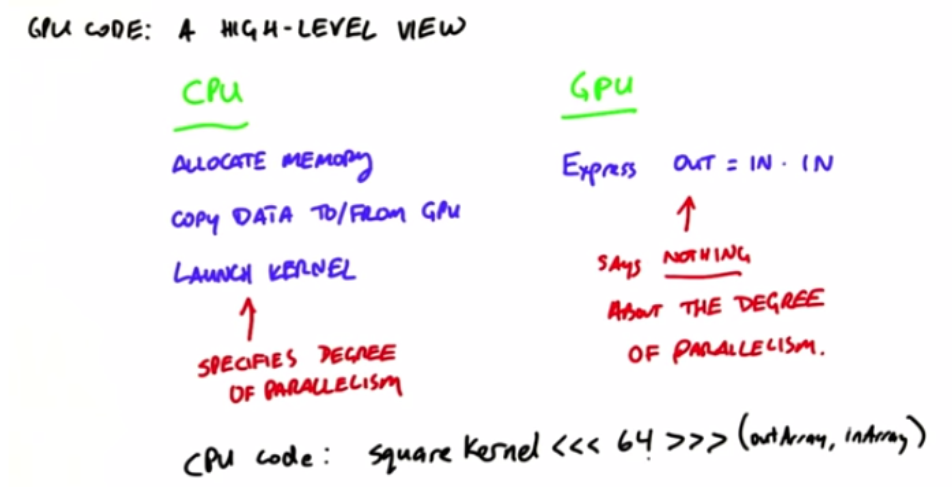 GPU CODE: A HIGH-LEVEL VIEW
CPU
ALLOCATE MEMORY
COPY DATA TO/FROM GPU
LAUNCH KERNEL
SPECIFIES DEGREE
OF PARALLELISM
GPU
Express OUT = IN · IN
SAYS NOTHING
ABOUT THE DEGREE
OF PARALLELISM.
CPU code: square Kernel <<< 64 >>> (outArray, inArray)